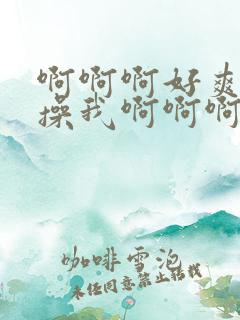 啊啊啊好爽
操我啊啊啊
咖啡雪泡
未经同意禁止转载